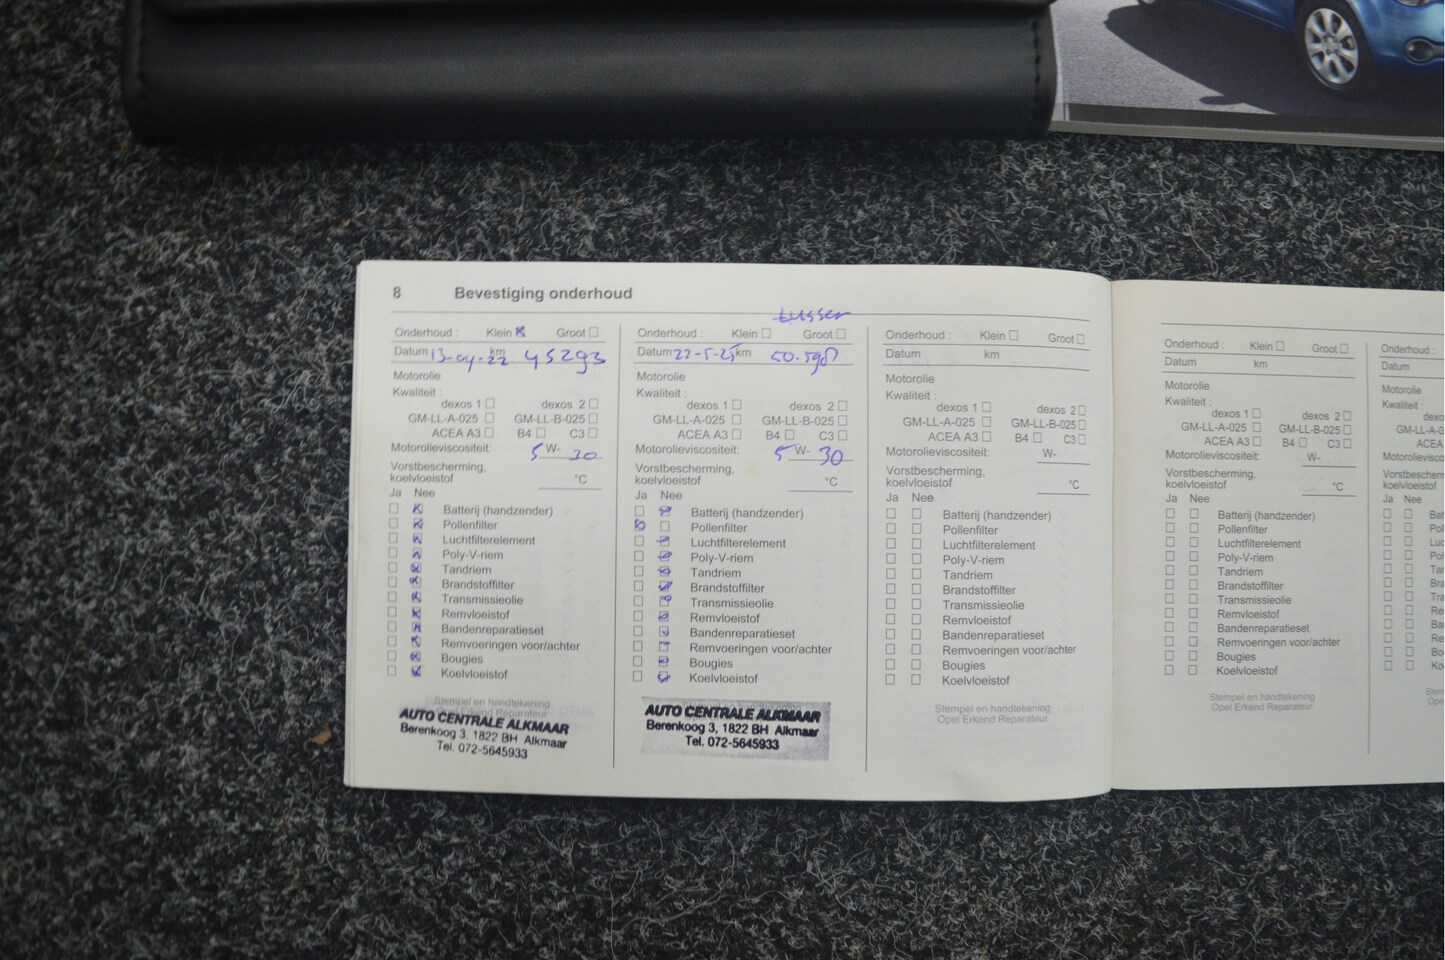 8 Bevestiging onderhoud
Onderhoud : Klein Groot
Datum 13-04-22 km 45293
Motorolie
Kwaliteit :
dexos 1 dexos 2
GM-LL-A-025 GM-LL-B-025
ACEA A3 B4 C3
Motorolieviscositeit: 5 W- 30
Vorstbescherming,
koelvloeistof °C
Ja Nee
Batterij (handzender)
Pollenfilter
Luchtfilterelement
Poly-V-riem
Tandriem
Brandstoffilter
Transmissieolie
Remvloeistof
Bandenreparatieset
Remvoeringen voor/achter
Bougies
Koelvloeistof
Stempel en handtekening
Opel Erkend Reparateur
AUTO CENTRALE ALKMAAR
Berenkoog 3, 1822 BH Alkmaar
Tel. 072-5645933
tussen
Onderhoud : Klein Groot
Datum 22-5-25 km 50.598
Motorolie
Kwaliteit :
dexos 1 dexos 2
GM-LL-A-025 GM-LL-B-025
ACEA A3 B4 C3
Motorolieviscositeit: 5 W- 30
Vorstbescherming,
koelvloeistof °C
Ja Nee
Batterij (handzender)
Pollenfilter
Luchtfilterelement
Poly-V-riem
Tandriem
Brandstoffilter
Transmissieolie
Remvloeistof
Bandenreparatieset
Remvoeringen voor/achter
Bougies
Koelvloeistof
AUTO CENTRALE ALKMAAR
Berenkoog 3, 1822 BH Alkmaar
Tel. 072-5645933
Onderhoud : Klein Groot
Datum km
Motorolie
Kwaliteit :
dexos 1 dexos 2
GM-LL-A-025 GM-LL-B-025
ACEA A3 B4 C3
Motorolieviscositeit: W-
Vorstbescherming,
koelvloeistof °C
Ja Nee
Batterij (handzender)
Pollenfilter
Luchtfilterelement
Poly-V-riem
Tandriem
Brandstoffilter
Transmissieolie
Remvloeistof
Bandenreparatieset
Remvoeringen voor/achter
Bougies
Koelvloeistof
Stempel en handtekening
Opel Erkend Reparateur
Onderhoud : Klein Groot
Datum km
Motorolie
Kwaliteit :
dexos 1 dexos 2
GM-LL-A-025 GM-LL-B-025
ACEA A3 B4 C3
Motorolieviscositeit: W-
Vorstbescherming,
koelvloeistof °C
Ja Nee
Batterij (handzender)
Pollenfilter
Luchtfilterelement
Poly-V-riem
Tandriem
Brandstoffilter
Transmissieolie
Remvloeistof
Bandenreparatieset
Remvoeringen voor/achter
Bougies
Koelvloeistof
Stempel en handtekening
Opel Erkend Reparateur
Onderhoud :
Datum
Motorolie
Kwaliteit :
Ja Nee